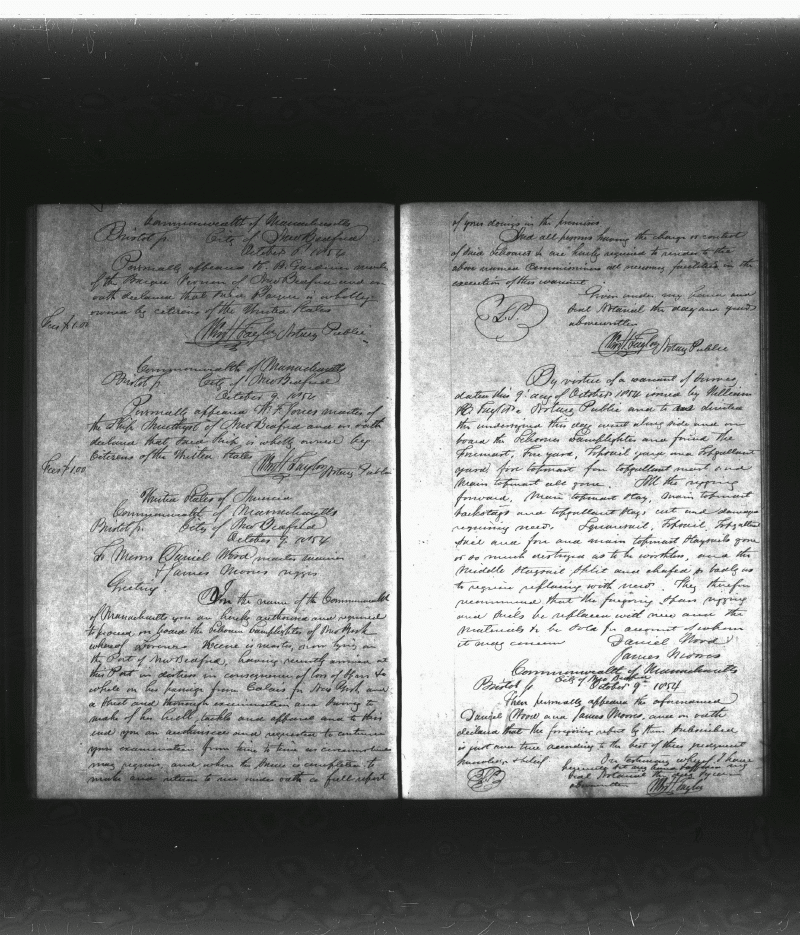 Commonwealth of Massachusetts
Bristol ss. City of New Bedford
October 1854
Personally appeared Gardner master
of the Barque of New Bedford and on
oath declared that said Barque is wholly
owned by citizens of the United States
Fees $1.00
Wm H Taylor Notary Public
Commonwealth of Massachusetts
Bristol ss. City of New Bedford
October 9. 1854
Personally appeared Jones master of
the Ship Amethyst of New Bedford and on oath
declared that said Ship is wholly owned by
Citizens of the United States
Fees $1.00
Wm H Taylor Notary Public
United States of America
Commonwealth of Massachusetts
Bristol ss. City of New Bedford
October 9. 1854
To Messrs Daniel Wood master mariner
& James rigger
Greeting
In the name of the Commonwealth
of Massachusetts you are hereby authorized and required
to proceed on board the Schooner Lamplighter of New York
whereof is master, now lying in
the Port of New Bedford, having recently arrived at
this Port in distress in consequence of loss of Spars &c
while on her passage from Calais for New York and
a strict and thorough examination and survey to
make of her hull, tackle and apparel and to this
end you are authorized and requested to continue
your examination from time to time as circumstances
may require, and when the same is completed to
make and return to me under oath a full report
of your doings in the premises
And all persons having the charge or control
of said Schooner &c are hereby required to render to the
above named Commissioners all necessary facilities in the
execution of this warrant
Given under my hand and
Seal Notarial the day and year
abovewritten
Wm H Taylor Notary Public
By virtue of a warrant of Survey
dated this 9th day of October 1854 issued by William
H Taylor a Notary Public and to us directed
the undersigned this day went along side and on
board the Schooner Lamplighter and found the
Foremast, Fore yard, Topsail yard and Topgallant
yard, fore topmast fore topgallant mast and
Main topmast all gone. All the rigging
forward, Main topmast stay, main topmast
backstays and topgallant stay cut and damaged
requiring new. Squaresail, Topsail, Topgallant
Sail and fore and main topmast Staysails gone
or so much destroyed as to be worthless, and the
Middle Staysail Split and chafed so badly as
to require replacing with new. They therefore
recommend that the foregoing Spars rigging
and Sails be replaced with new and the
materials to be sold for account of whom
it may concern
Daniel Wood
James
Commonwealth of Massachusetts
Bristol ss. City of New Bedford
October 9th 1854
Then personally appeared the aforenamed
Daniel Wood and James and on oath
declared that the foregoing report by them Subscribed
is just and true according to the best of their judgment
knowledge & belief
In testimony whereof I have
hereunto set my hand & my
Seal Notarial the day & year
abovewritten
Wm H Taylor